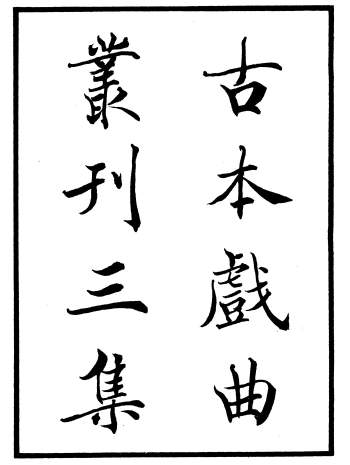 古本戲曲
叢刊三集